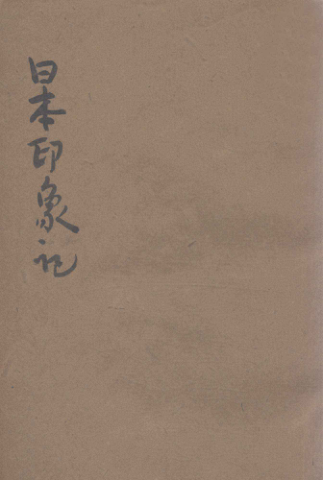 日本印象記